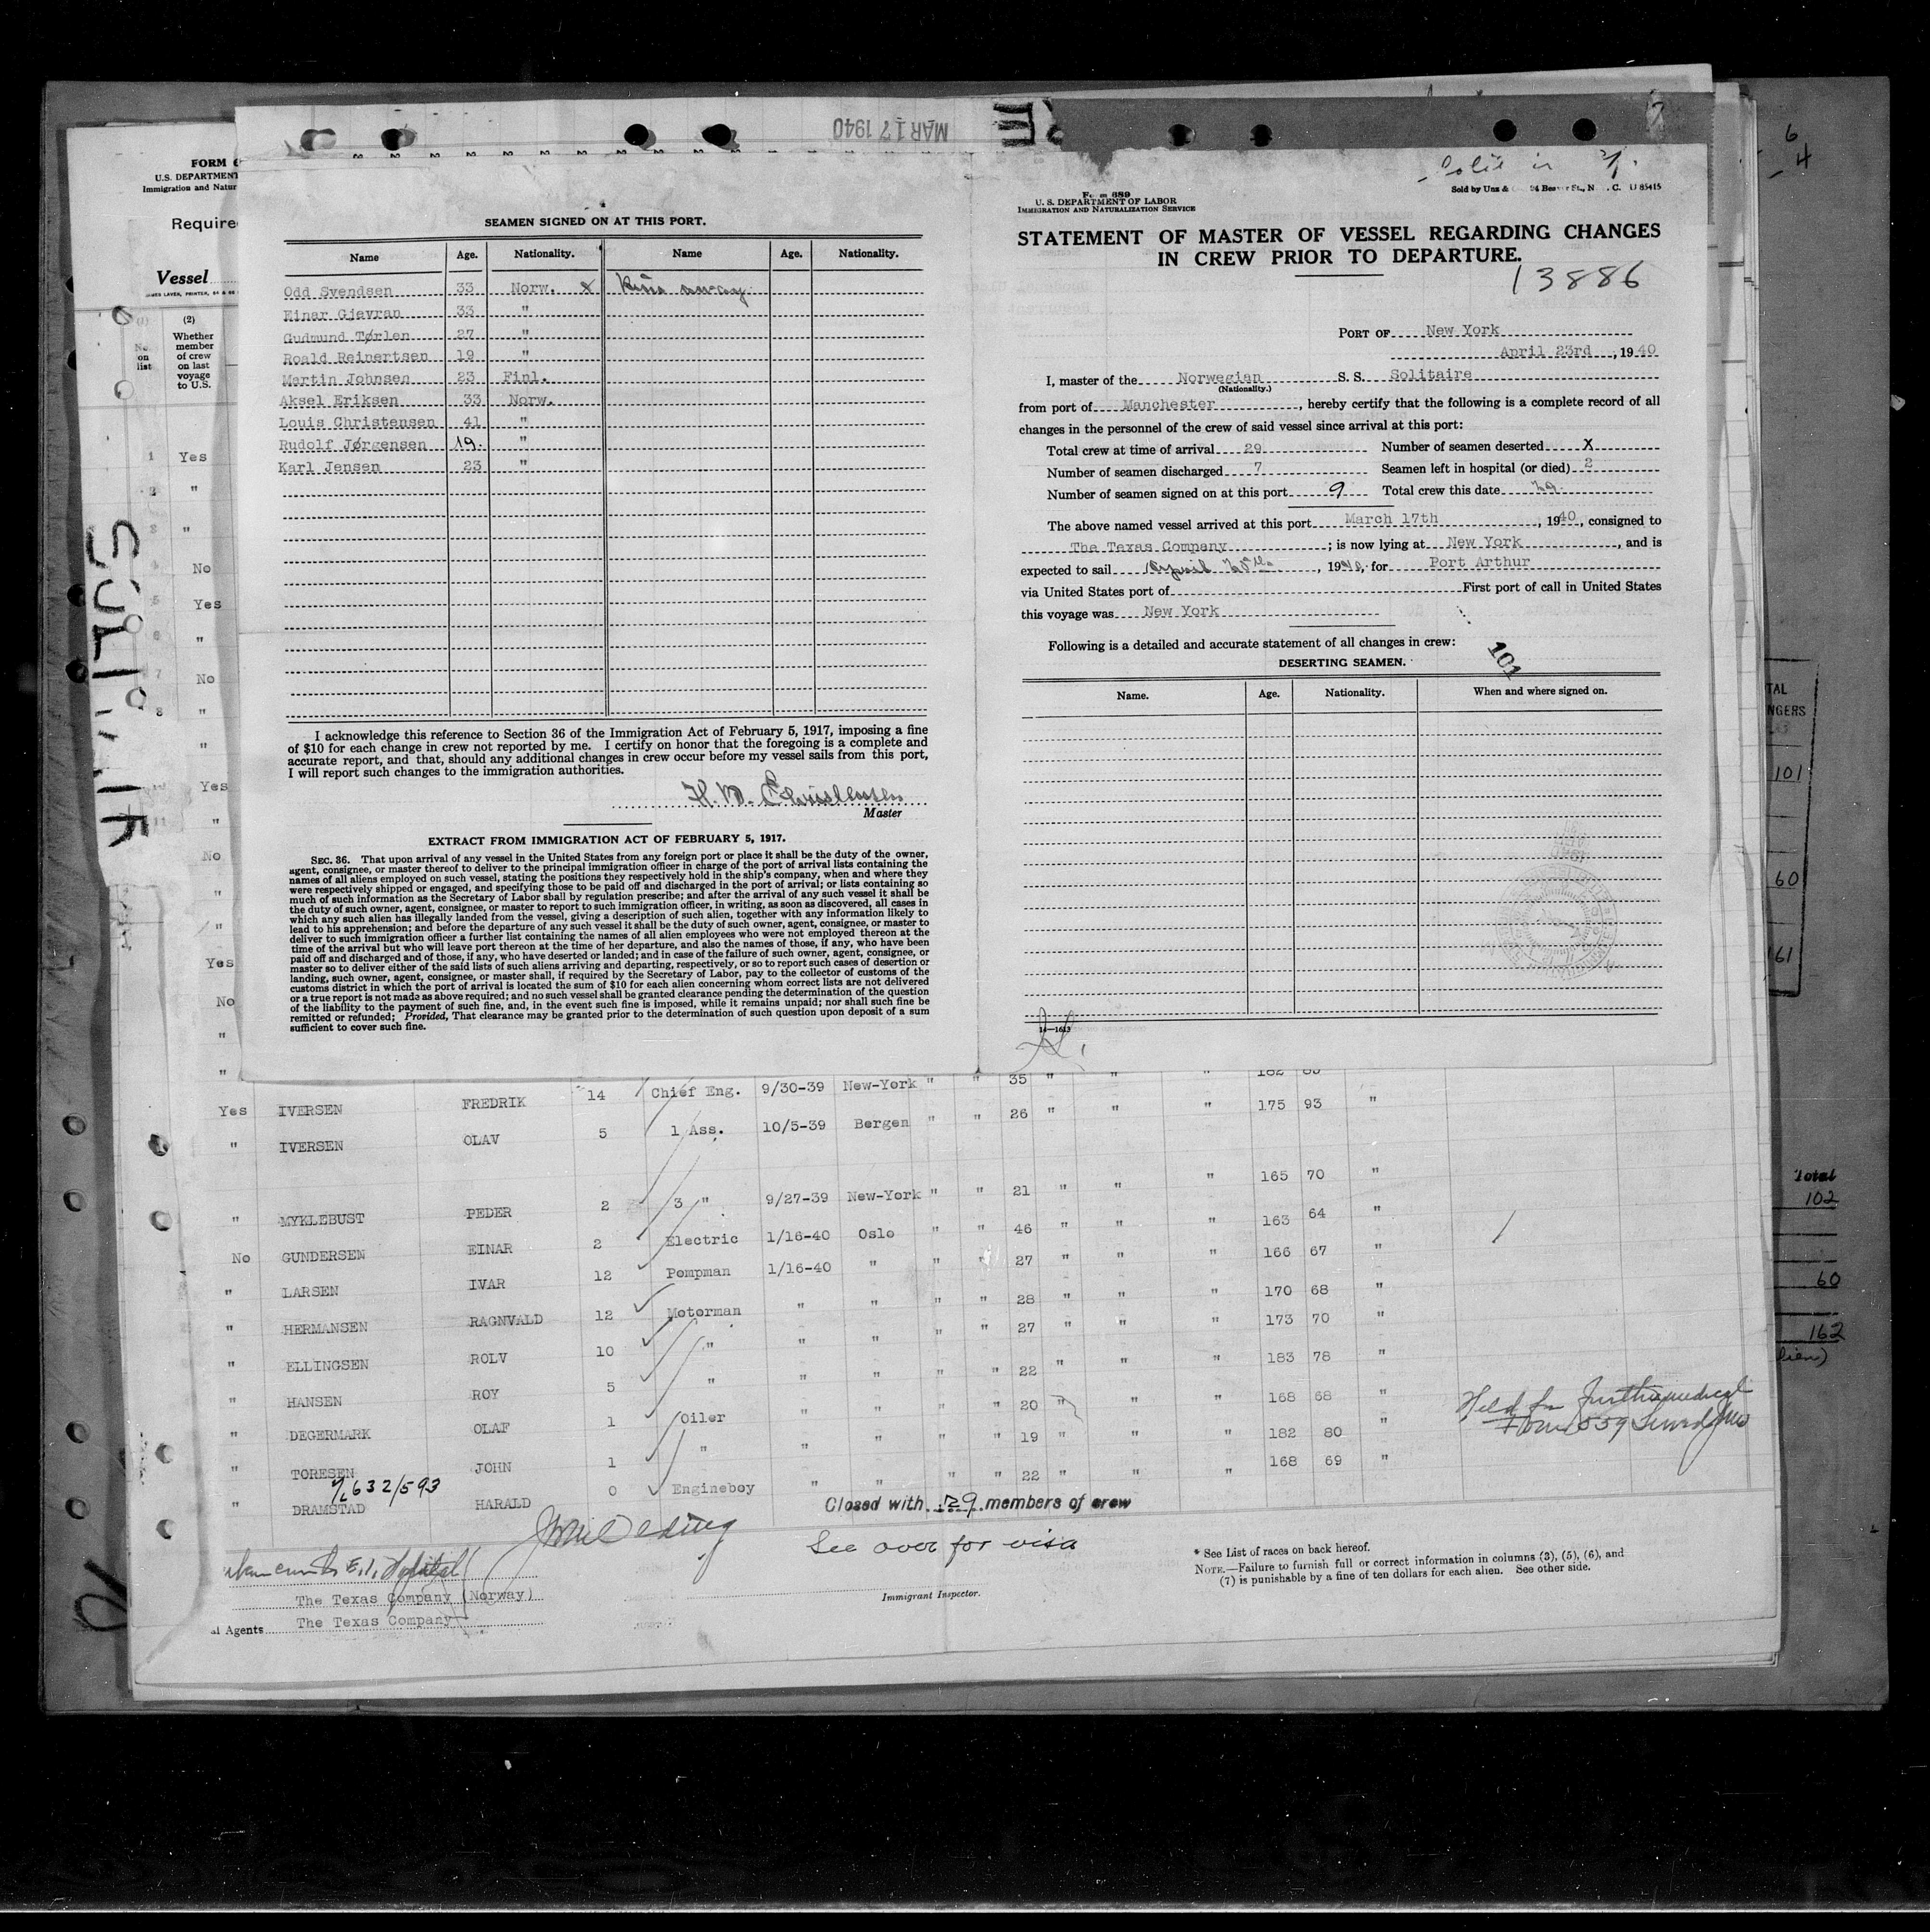 MAR 17 1940
FORM 6
U.S. DEPARTMENT
Immigration and Natur
Require
Vessel
(2)
No. on list
Whether member of crew on last voyage to U.S.
1 Yes
2 "
3 "
4 No
5 Yes
6 "
7 No
8 "
"
Yes
11 "
No
"
"
Yes
No
"
"
SOLITAIR
SEAMEN SIGNED ON AT THIS PORT.
Name Age. Nationality. Name Age. Nationality.
Odd Svendsen 33 Norw. x
Einar Gjavran 33 "
Gudmund Tørlen 27 "
Roald Reinertsen 19 "
Martin Johnsen 23 Finl.
Aksel Eriksen 33 Norw.
Louis Christensen 41 "
Rudolf Jørgensen 19. "
Karl Jensen 23 "
I acknowledge this reference to Section 36 of the Immigration Act of February 5, 1917, imposing a fine
of $10 for each change in crew not reported by me. I certify on honor that the foregoing is a complete and
accurate report, and that, should any additional changes in crew occur before my vessel sails from this port,
I will report such changes to the immigration authorities.
H. M. Christensen
Master
EXTRACT FROM IMMIGRATION ACT OF FEBRUARY 5, 1917.
SEC. 36. That upon arrival of any vessel in the United States from any foreign port or place it shall be the duty of the owner,
agent, consignee, or master thereof to deliver to the principal immigration officer in charge of the port of arrival lists containing the
names of all aliens employed on such vessel, stating the positions they respectively hold in the ship's company, when and where they
were respectively shipped or engaged, and specifying those to be paid off and discharged in the port of arrival; or lists containing so
much of such information as the Secretary of Labor shall by regulation prescribe; and after the arrival of any such vessel it shall be
the duty of such owner, agent, consignee, or master to report to such immigration officer, in writing, as soon as discovered, all cases in
which any such alien has illegally landed from the vessel, giving a description of such alien, together with any information likely to
lead to his apprehension; and before the departure of any such vessel it shall be the duty of such owner, agent, consignee, or master to
deliver to such immigration officer a further list containing the names of all alien employees who were not employed thereon at the
time of the arrival but who will leave port thereon at the time of her departure, and also the names of those, if any, who have been
paid off and discharged and of those, if any, who have deserted or landed; and in case of the failure of such owner, agent, consignee, or
master so to deliver either of the said lists of such aliens arriving and departing, respectively, or so to report such cases of desertion or
landing, such owner, agent, consignee, or master shall, if required by the Secretary of Labor, pay to the collector of customs of the
customs district in which the port of arrival is located the sum of $10 for each alien concerning whom correct lists are not delivered
or a true report is not made as above required; and no such vessel shall be granted clearance pending the determination of the question
of the liability to the payment of such fine, and, in the event such fine is imposed, while it remains unpaid; nor shall such fine be
remitted or refunded; Provided, That clearance may be granted prior to the determination of such question upon deposit of a sum
sufficient to cover such fine.
Form 689
U. S. DEPARTMENT OF LABOR
IMMIGRATION AND NATURALIZATION SERVICE
Sold by Unz & 94 Beaver St., N. C. 85415
STATEMENT OF MASTER OF VESSEL REGARDING CHANGES
IN CREW PRIOR TO DEPARTURE.
13886
PORT OF New York
April 23rd, 1940
I, master of the Norwegian S. S. Solitaire
(Nationality.)
from port of Manchester, hereby certify that the following is a complete record of all
changes in the personnel of the crew of said vessel since arrival at this port:
Total crew at time of arrival 29 Number of seamen deserted X
Number of seamen discharged 7 Seamen left in hospital (or died) 2
Number of seamen signed on at this port 9 Total crew this date 29
The above named vessel arrived at this port March 17th, 1940, consigned to
The Texas Company; is now lying at New York, and is
expected to sail April, 1940, for Port Arthur
via United States port of First port of call in United States
this voyage was New York
Following is a detailed and accurate statement of all changes in crew:
101
DESERTING SEAMEN.
Name. Age. Nationality. When and where signed on.
14—1613
6
4
TAL
NGERS
101
60
161
Total
102
60
162
14 Chief Eng. 9/30-39 New-York " " 35 " " "
Yes IVERSEN FREDRIK 5 1 Ass. 10/5-39 Bergen " " 26 " " " 175 93 "
" IVERSEN OLAV
165 70 "
" MYKLEBUST PEDER 2 3 " 9/27-39 New-York " " 21 " " " 163 64 "
No GUNDERSEN EINAR 2 Electric 1/16-40 Oslo " " 46 " " " 166 67 "
" LARSEN IVAR 12 Pompman 1/16-40 " " " 27 " " " 170 68 "
" HERMANSEN RAGNVALD 12 Motorman " " " " 28 " " " 173 70 "
" ELLINGSEN ROLV 10 " " " " " 27 " " " 183 78 "
" HANSEN ROY 5 " " " " " 22 " " " 168 68 "
" DEGERMARK OLAF 1 Oiler " " " " 20 " " " 182 80 "
" TORESEN JOHN 1 " " " " " 19 " " " 168 69 "
" DRAMSTAD HARALD 0 Engineboy " " " " 22 " " "
632/593
Held for
Closed with 29 members of crew
See over for visa
Immigrant Inspector.
* See List of races on back hereof.
NOTE.—Failure to furnish full or correct information in columns (3), (5), (6), and
(7) is punishable by a fine of ten dollars for each alien. See other side.
The Texas Company (Norway)
al Agents The Texas Company